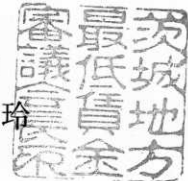 茨城地方
最低賃金
審議会印
玲